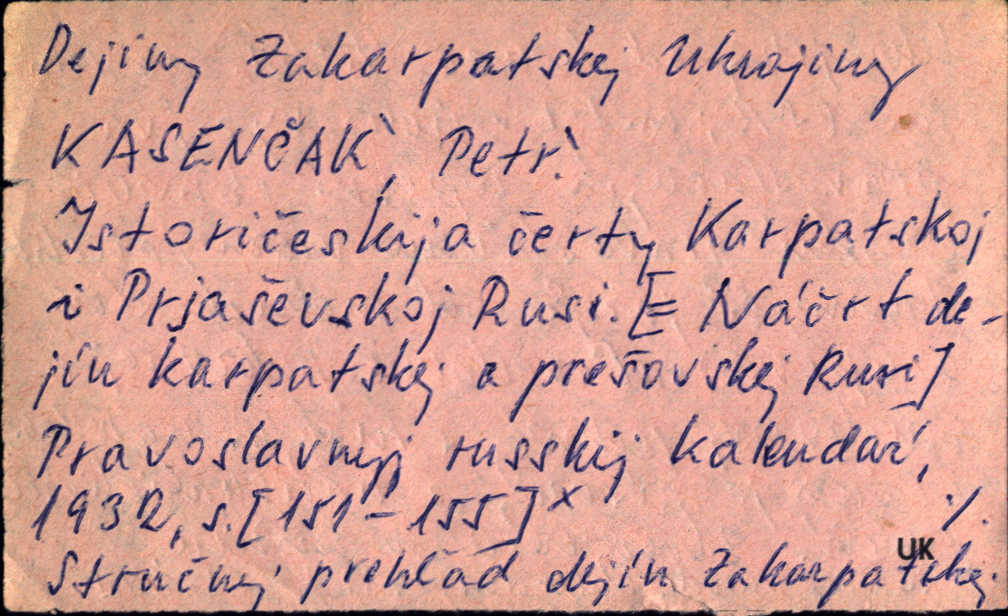 Dejiny Zakarpatskej Ukrajiny
KASENČAK, Petr.
Istoričeskija čerty Karpatskoj
i Prjaševskoj Rusi. [= Náčrt de-
jín karpatskej a prešovskej Rusi]
Pravoslavnyj russkij kalendar',
1932, s. [151-155] x
./.
UK
Stručný prehľad dejín Zakarpatskej